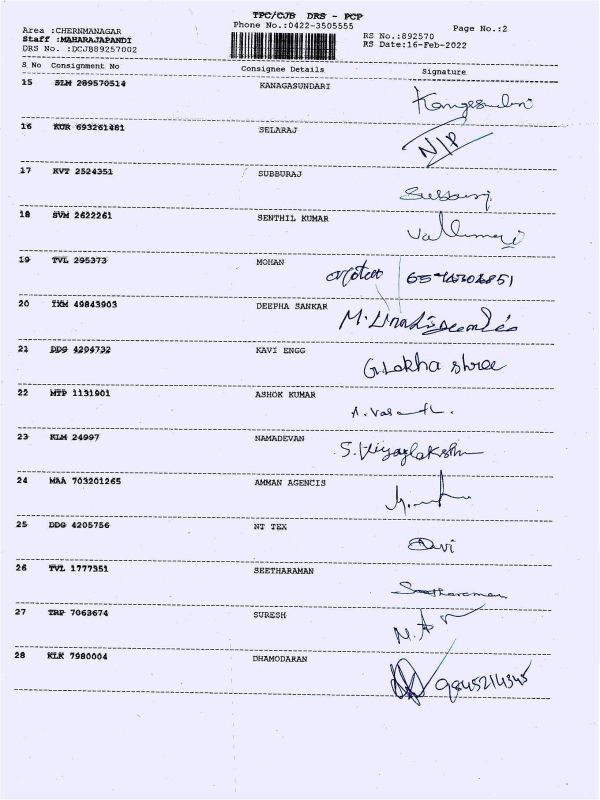 TPC/CJB DRS - PCP
Area :CHERNMANAGAR Phone No.:0422-3505555 Page No.:2
Staff :MAHARAJAPANDI RS No.:892570
DRS No. :DCJB89257002 RS Date:16-Feb-2022
S No Consignment No Consignee Details Signature
15 SLM 289570514 KANAGASUNDARI
16 KUR 693261481 SELARAJ N/P
17 KVT 2524351 SUBBURAJ
18 SVM 2622261 SENTHIL KUMAR
19 TVL 295373 MOHAN
20 IXM 49843903 DEEPHA SANKAR
21 DDG 4204732 KAVI ENGG G.Lakha shree
22 MTP 1131901 ASHOK KUMAR
23 KLM 24997 NAMADEVAN
24 MAA 703201265 AMMAN AGENCIS
25 DDG 4205756 NT TEX
26 TVL 1777351 SEETHARAMAN Seetharaman
27 TRP 7063674 SURESH
28 KLK 7980004 DHAMODARAN 9845214345